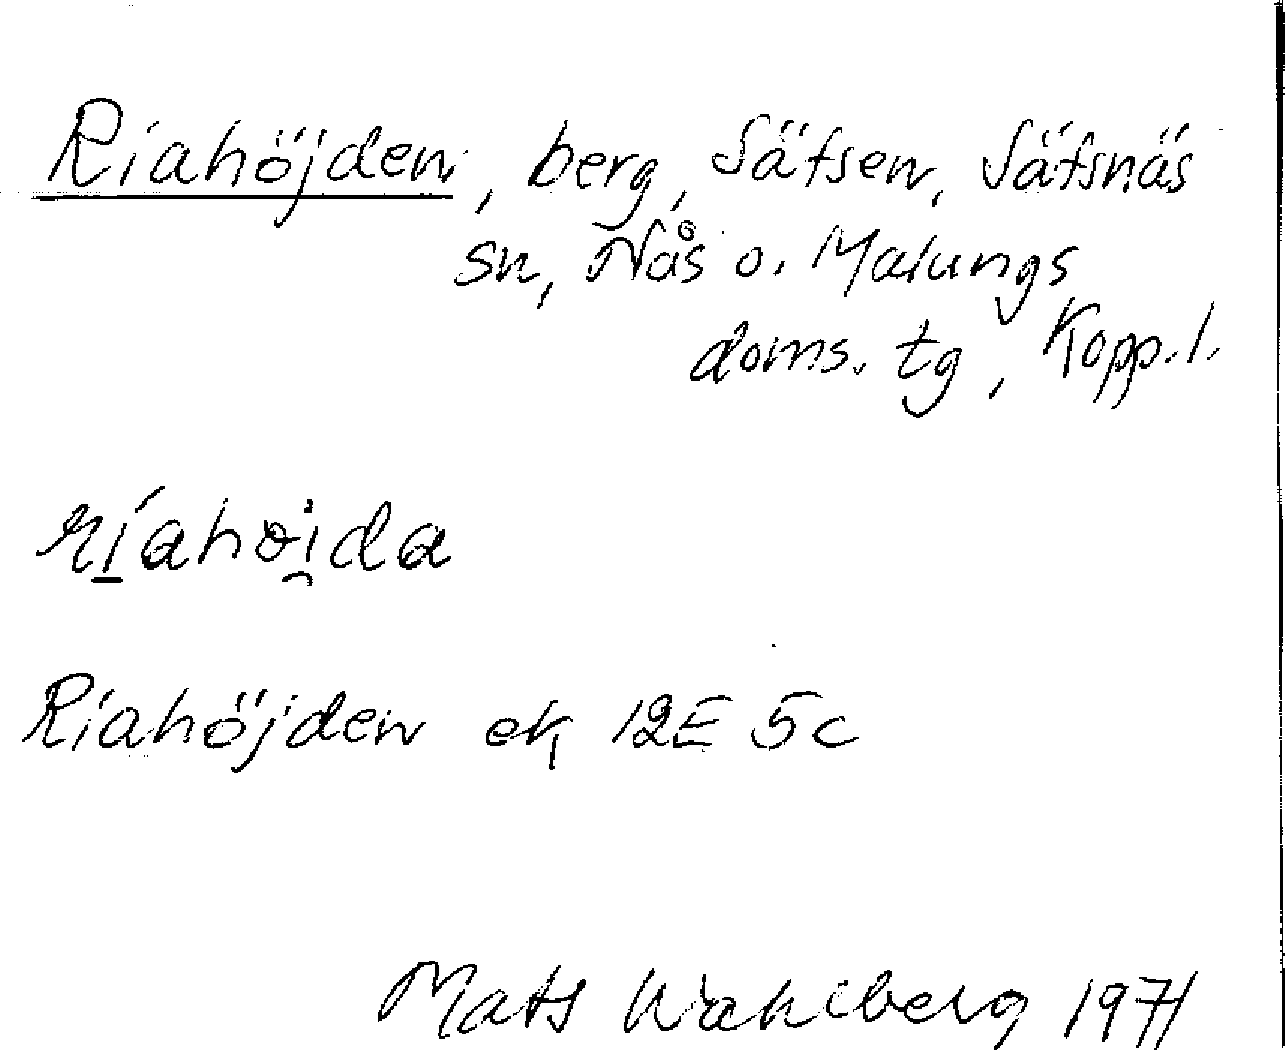 Riahöjden, berg, Sätsen, Sätsnäs
sn, Nås o. Malungs
doms. tg, Kopp. l.
Riahöjden ek 12E 5c
Mats Wahlberg 1971